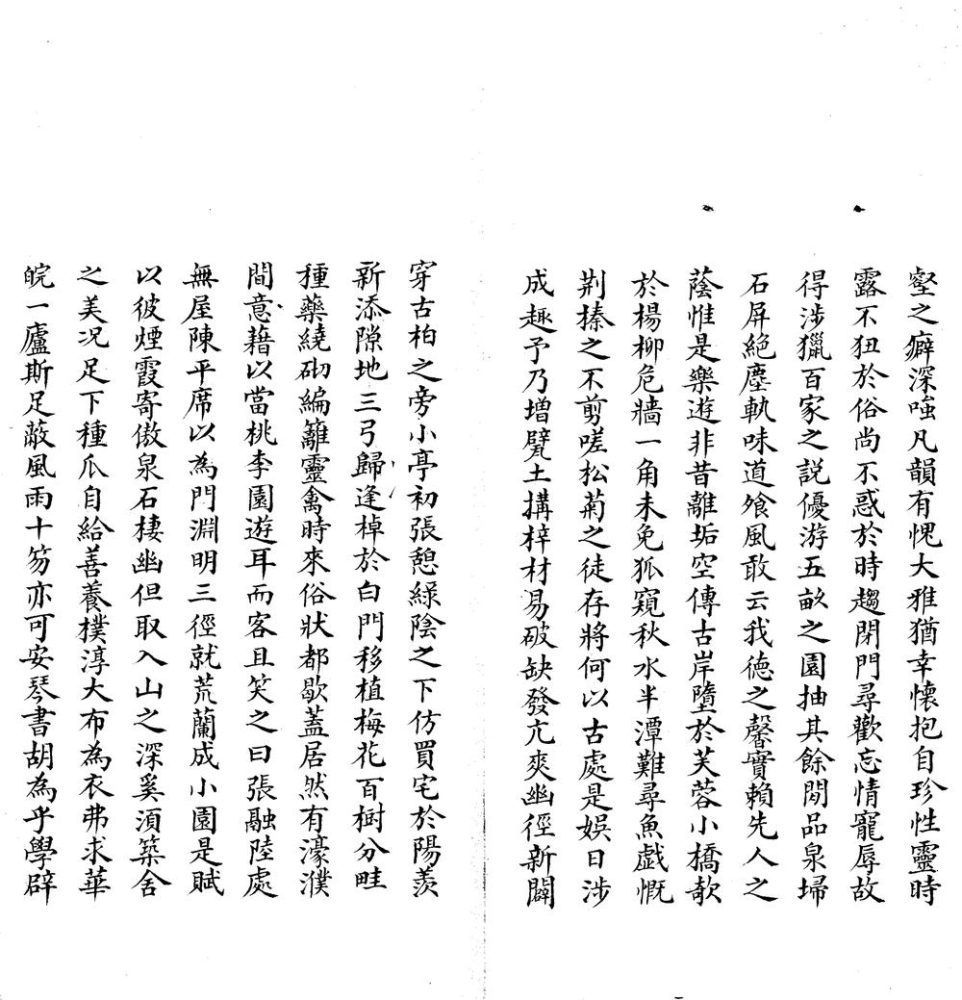 壑之癖深嗤凡韻有愧大雅猶幸懷抱自珍性靈時
露不狃於俗尚不惑於時趨閉門尋歡忘情寵辱故
得涉獵百家之説優游五畝之園抽其餘閒品泉埽
石屏絶塵軌味道飧風敢云我徳之馨實賴先人之
蔭惟是樂遊非昔離垢空傳古岸墮於芙蓉小橋欹
於楊柳危牆一角未免狐窺秋水半潭難尋魚戲慨
荆榛之不剪嗟松菊之徒存將何以古處是娯日涉
成趣予乃増甓土搆梓材易破缺發亢爽幽徑新闢
穿古柏之旁小亭初張憩緑陰之下仿買宅於陽羨
新添隙地三弓歸逢棹於白門移植梅花百樹分畦
種藥繞砌編籬靈禽時來俗狀都歇蓋居然有濠濮
間意藉以當桃李園遊耳而客且笑之曰張融陸處
無屋陳平席以為門淵明三徑就荒蘭成小園是賦
以彼煙霞寄傲泉石棲幽但取入山之深奚湏築舍
之美况足下種瓜自給善養樸淳大布為衣弗求華
皖一廬斯足蔽風雨十笏亦可安琴書胡為乎學辟